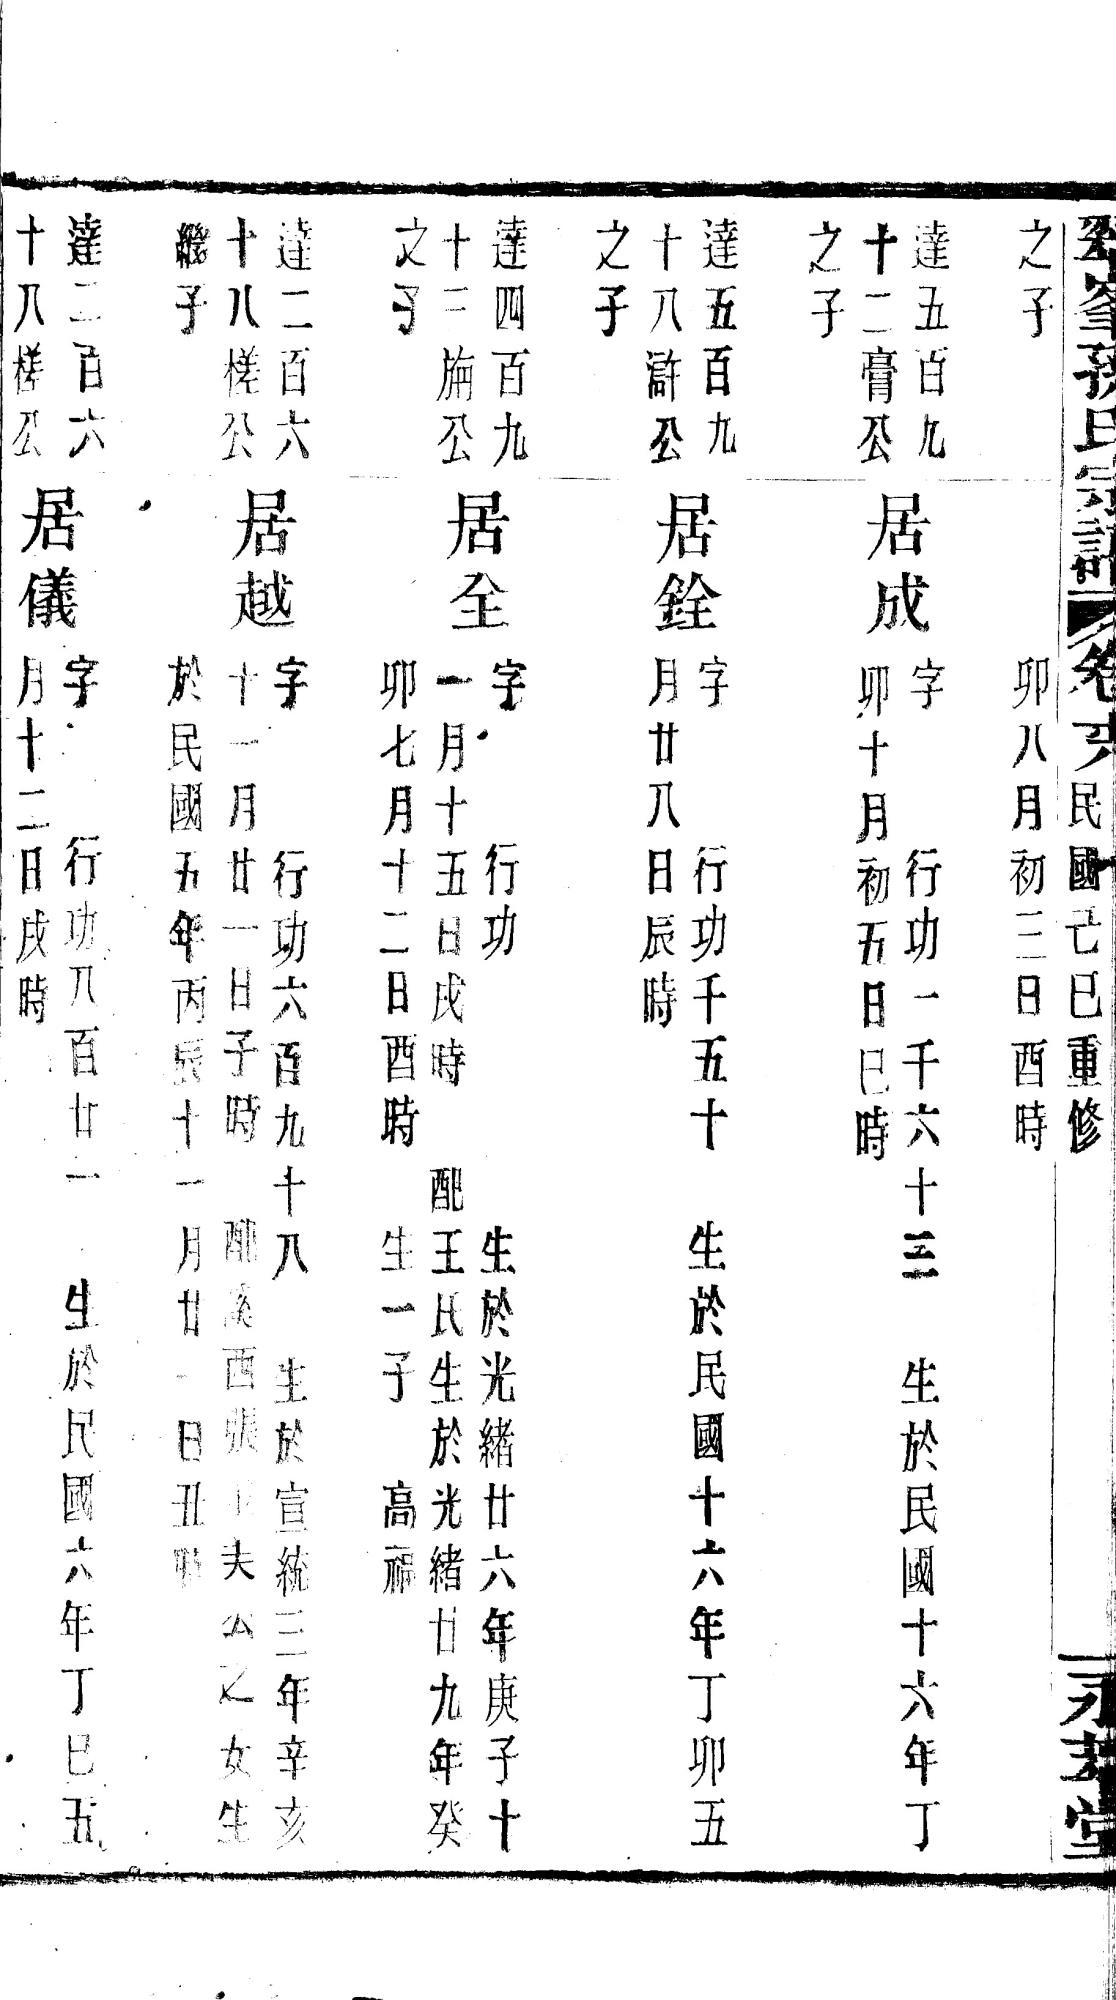 峯孫氏宗譜 卷 民國己巳重修 堂
之子
卯八月初三日酉時
達五百九
十二膏公
之子
居成
字 行功一千六十三 生於民國十六年丁
卯十月初五日巳時
達五百九
十八滸公
之子
居銓
字 行功千五十 生於民國十六年丁卯五
月廿八日辰時
達四百九
十三施公
之子
居全
字 行功 生於光緒廿六年庚子十
一月十五日戌時 配王氏生於光緒廿九年癸
卯七月十二日酉時 生一子 高福
達二百六
十八槎公
繼子
居越
字 行功六百九十八 生於宣統三年辛亥
十一月廿一日子時 配溪西張夫公之女生
於民國五年丙辰十一月廿一日丑時
達二百六
十八槎公
居儀
字 行功八百廿一 生於民國六年丁巳五
月十二日戌時